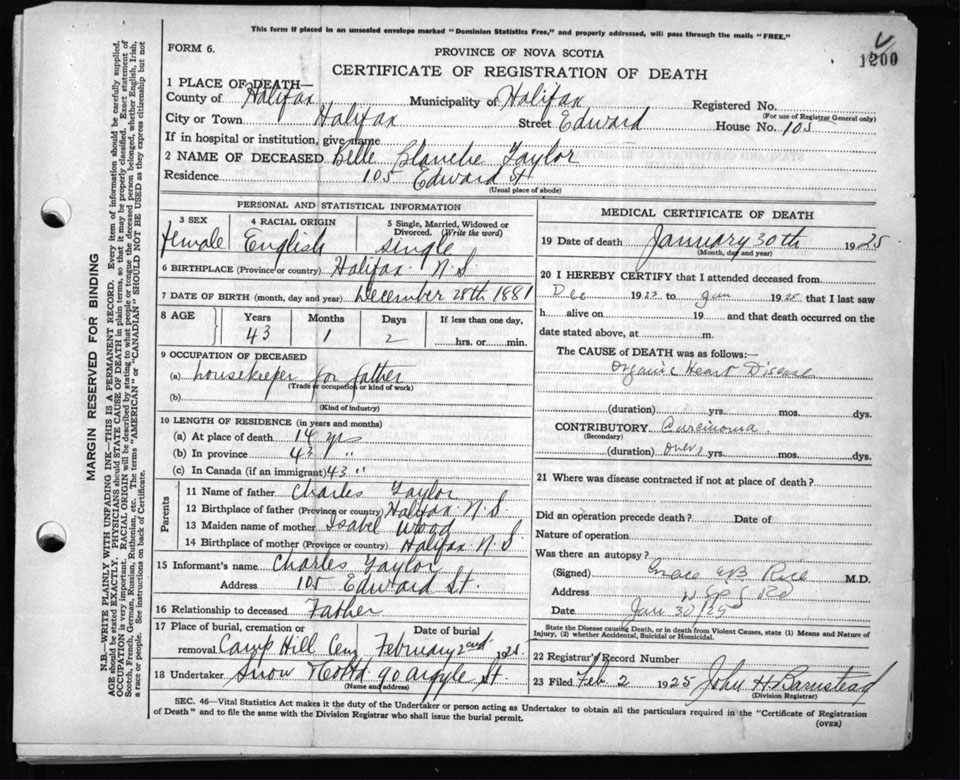 This form if placed in an unsealed envelope marked "Dominion Statistics Free," and properly addressed, will pass through the mails "FREE."
FORM 6.
PROVINCE OF NOVA SCOTIA
1200
CERTIFICATE OF REGISTRATION OF DEATH
1 PLACE OF DEATH—
County of Halifax Municipality of Halifax Registered No.
(For use of Registrar General only)
City or Town Halifax Street Edward House No. 105
If in hospital or institution, give name
2 NAME OF DECEASED Belle Blanche Taylor
Residence 105 Edward St
(Usual place of abode)
PERSONAL AND STATISTICAL INFORMATION
3 SEX 4 RACIAL ORIGIN 5 Single, Married, Widowed or Divorced. (Write the word)
female English single
6 BIRTHPLACE (Province or country) Halifax N.S.
7 DATE OF BIRTH (month, day and year) December 28th 1881
8 AGE Years Months Days If less than one day,
43 1 2 hrs. or min.
9 OCCUPATION OF DECEASED
(a) housekeeper for father
(Trade or occupation or kind of work)
(b)
(Kind of industry)
10 LENGTH OF RESIDENCE (in years and months)
(a) At place of death 14 yrs
(b) In province 43 "
(c) In Canada (if an immigrant) 43 "
Parents
11 Name of father Charles Taylor
12 Birthplace of father (Province or country) Halifax N.S.
13 Maiden name of mother Isabel Wood
14 Birthplace of mother (Province or country) Halifax N.S.
15 Informant's name Charles Taylor
Address 105 Edward St.
16 Relationship to deceased Father
17 Place of burial, cremation or Date of burial
removal Camp Hill Cem February 2nd 1925
18 Undertaker Snow & Co Ltd 90 Argyle St.
(Name and address)
MEDICAL CERTIFICATE OF DEATH
19 Date of death January 30th 1925
(Month, day and year)
20 I HEREBY CERTIFY that I attended deceased from
Dec 1923 to Jan 1925 that I last saw
h alive on 19 and that death occurred on the
date stated above, at m.
The CAUSE of DEATH was as follows:—
Organic Heart Disease
(duration) yrs. mos. dys.
CONTRIBUTORY Carcinoma
(Secondary)
(duration) over 1 yrs. mos. dys.
21 Where was disease contracted if not at place of death?
Did an operation precede death? Date of
Nature of operation
Was there an autopsy?
(Signed) Grace EB Rice M.D.
Address
Date Jan 30/25
State the Disease causing Death, or in death from Violent Causes, state (1) Means and Nature of
Injury, (2) whether Accidental, Suicidal or Homicidal.
22 Registrar's Record Number
23 Filed Feb 2 1925 John H Barnstead
(Division Registrar)
SEC. 46—Vital Statistics Act makes it the duty of the Undertaker or person acting as Undertaker to obtain all the particulars required in the "Certificate of Registration
of Death" and to file the same with the Division Registrar who shall issue the burial permit.
(OVER)
MARGIN RESERVED FOR BINDING
N.B.—WRITE PLAINLY WITH UNFADING INK—THIS IS A PERMANENT RECORD. Every item of information should be carefully supplied.
AGE should be stated EXACTLY. PHYSICIANS should STATE CAUSE OF DEATH in plain terms, so that it may be properly classified. Exact statement of
OCCUPATION is very important. RACIAL ORIGIN will be described by stating to what people or tongue the deceased person belonged, whether English, Irish,
Scotch, French, German, Russian, Ruthenian, etc. The terms "AMERICAN" or "CANADIAN" SHOULD NOT BE USED as they express citizenship but not
a race or people. See instructions on back of Certificate.